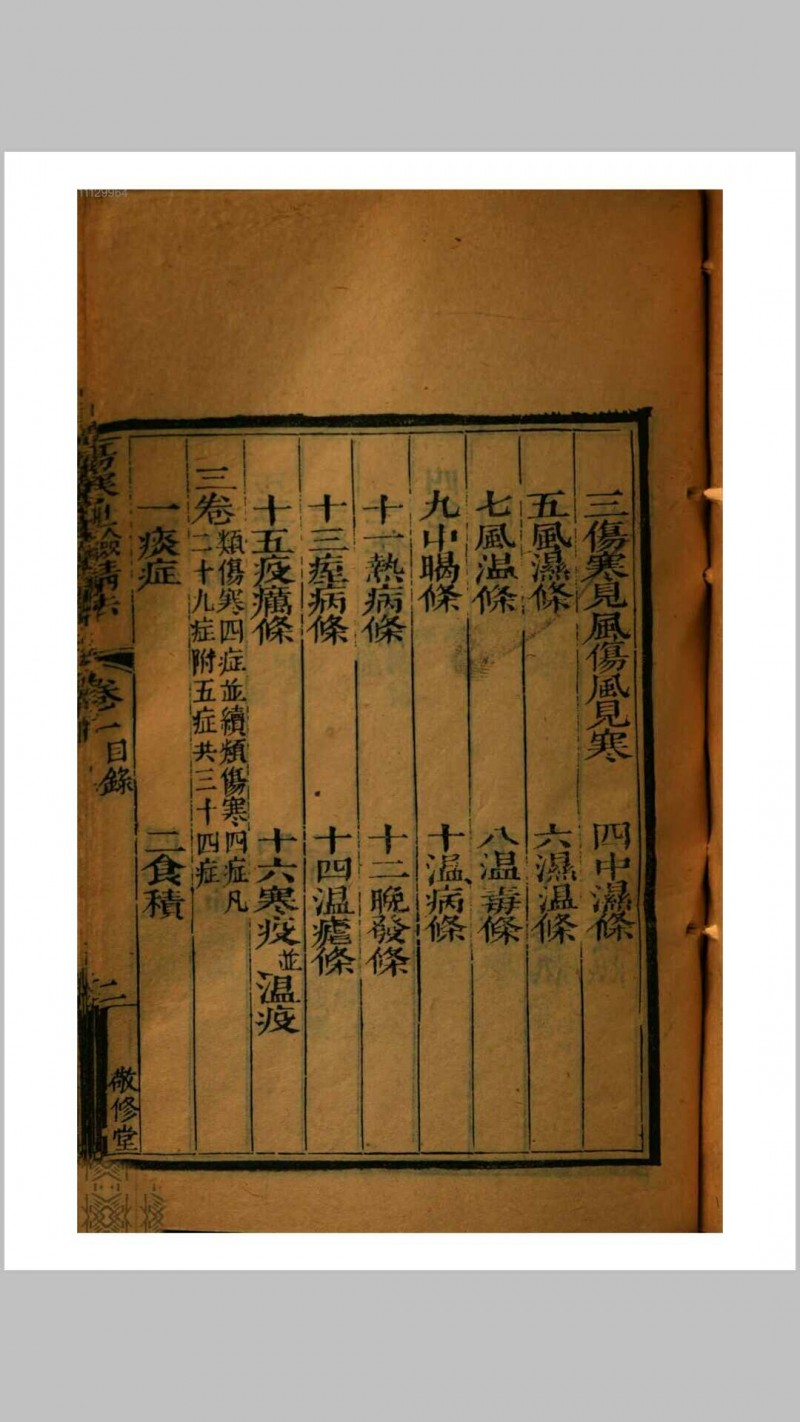 三傷寒見風傷風見寒　四中濕條
五風濕條　六濕温條
七風温條　八温毒條
九中暍條　十温病條
十一熱病條　十二晚發條
十三痙病條　十四温瘧條
十五疫癘條　十六寒疫並温疫
三卷　類傷寒四症並續類傷寒四症凡
二十九症附五症共三十四症
一痰症　二食積
卷一目錄
二
敬修堂
11129964